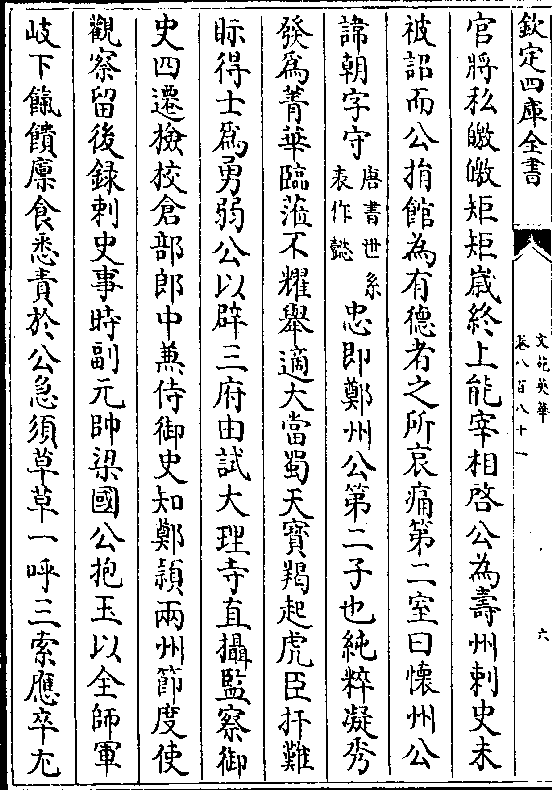 欽定四庫全書
文苑英華
卷八百八十一
六
官將私皦皦矩矩歲終上能宰相啓公為壽州刺史未
被詔而公捐館為有德者之所哀痛第二室曰懷州公
諱朝字守
唐書世系
表作懿
忠即鄭州公第二子也純粹凝秀
發為菁華臨蒞不耀舉適大當蜀天寶羯起虎臣扞難
眎得士為勇弱公以辟三府由試大理寺直攝監察御
史四遷檢挍倉部郎中兼侍御史知鄭潁兩州節度使
觀察留後録刺史事時副元帥梁國公抱玉以全師軍
岐下餼饋廩食悉責於公急須草草一呼三索應卒尤